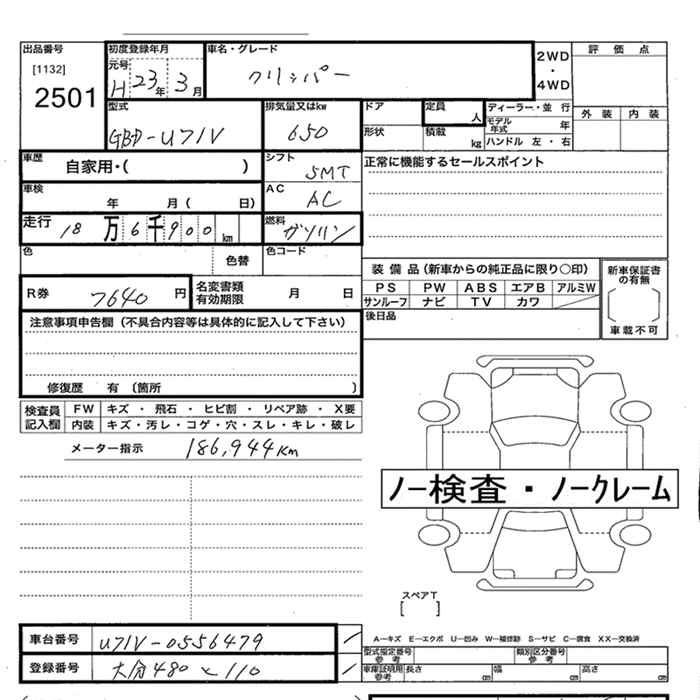 出品番号
[1132]
2501
初度登録年月
元号
H 23 年 3 月
車名・グレード
クリッパー
2WD
・
4WD
評 価 点
外 装 内 装
型式
GBD-U71V
排気量又はkw
650
ドア
形状
定員
人
積載
kg
ディーラー・並 行
モデル
年式 年
ハンドル 左 ・ 右
車歴
自家用・( )
シフト
5MT
正常に機能するセールスポイント
車検
年 月( 日)
AC
AC
走行
18 万 6 千 9 0 0 km
燃料
ガソリン
色
色替
色コード
装 備 品(新車からの純正品に限り○印)
PS PW ABS エアB アルミW
サンルーフ ナビ TV カワ
新車保証書
の有無
車載不可
R券 7640 円
名変書類
有効期限
月 日
後日品
注意事項申告欄(不具合内容等は具体的に記入して下さい)
修復歴 有 〔箇所 〕
検査員
記入欄
FW キズ ・ 飛石 ・ ヒビ割 ・ リペア跡 ・ X要
内装 キズ・汚レ・コゲ・穴・スレ・キレ・破レ
メーター指示 186,944Km
ノー検査・ノークレーム
スペアT
[ ]
車台番号 U71V-0556479
登録番号 大分480 と 110
A―キズ E―エクボ U―凹み W―補修跡 S―サビ C―腐食 XX―交換済
型式指定番号
参 考
類別区分番号
参 考
車庫証明用
参考
長さ cm 幅 cm 高さ cm